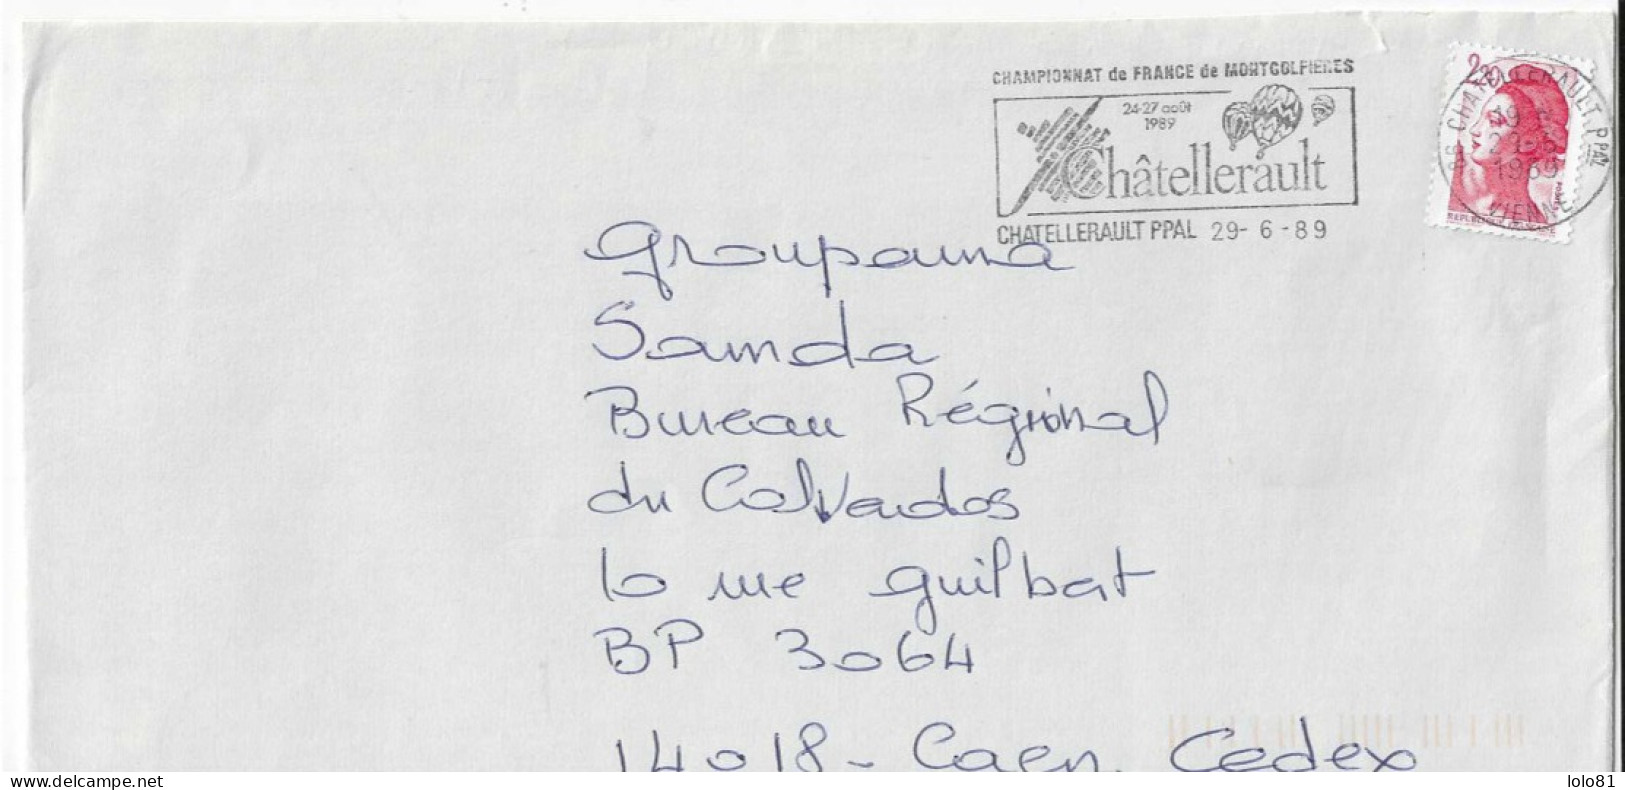 CHAMPIONNAT de FRANCE de MONTGOLFIERES
24-27 août
1989
Châtellerault
CHATELLERAULT PPAL 29-6-89
2,20
86 CHATELLERAULT PPAL
1989
VIENNE
Groupama
Samda
Bureau Régional
du Calvados
10 rue Guilbat
BP 3064
14018 - Caen. Cedex
www.delcampe.net
lolo81